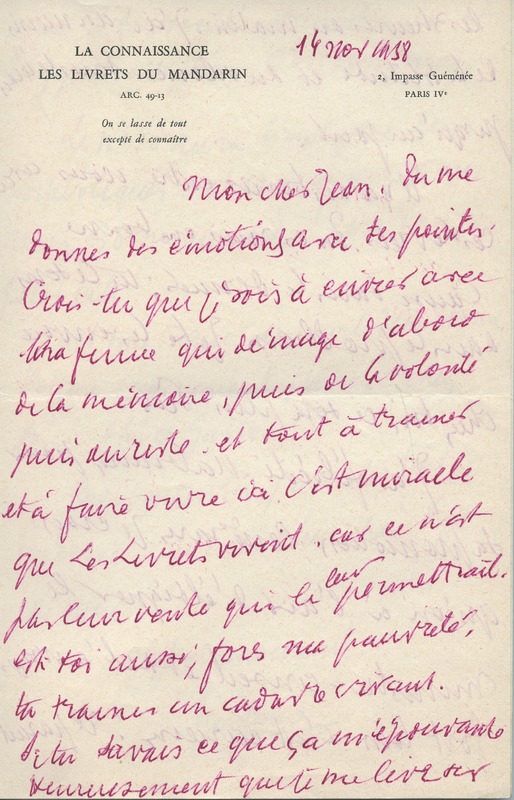 LA CONNAISSANCE
LES LIVRETS DU MANDARIN
ARC. 49-13
On se lasse de tout
excepté de connaître
14 nov 1938
2, Impasse Guéménée
PARIS IVᵉ
Mon cher Jean. Tu me
donnes des émotions avec tes pointes.
Crois-tu que je sois à envier avec
Ma femme qui déménage d'abord
de la mémoire, puis de la volonté
puis du reste. et tout à trainer
et à faire vivre ici. C'est miracle
que Les Livrets vivent, car ce n'est
pas leur vente qui le leur permettrait.
et toi aussi, fors ma pauvreté,
tu traines un cadavre vivant.
Si tu savais ce que ça m'épouvante
Heureusement que je me lève